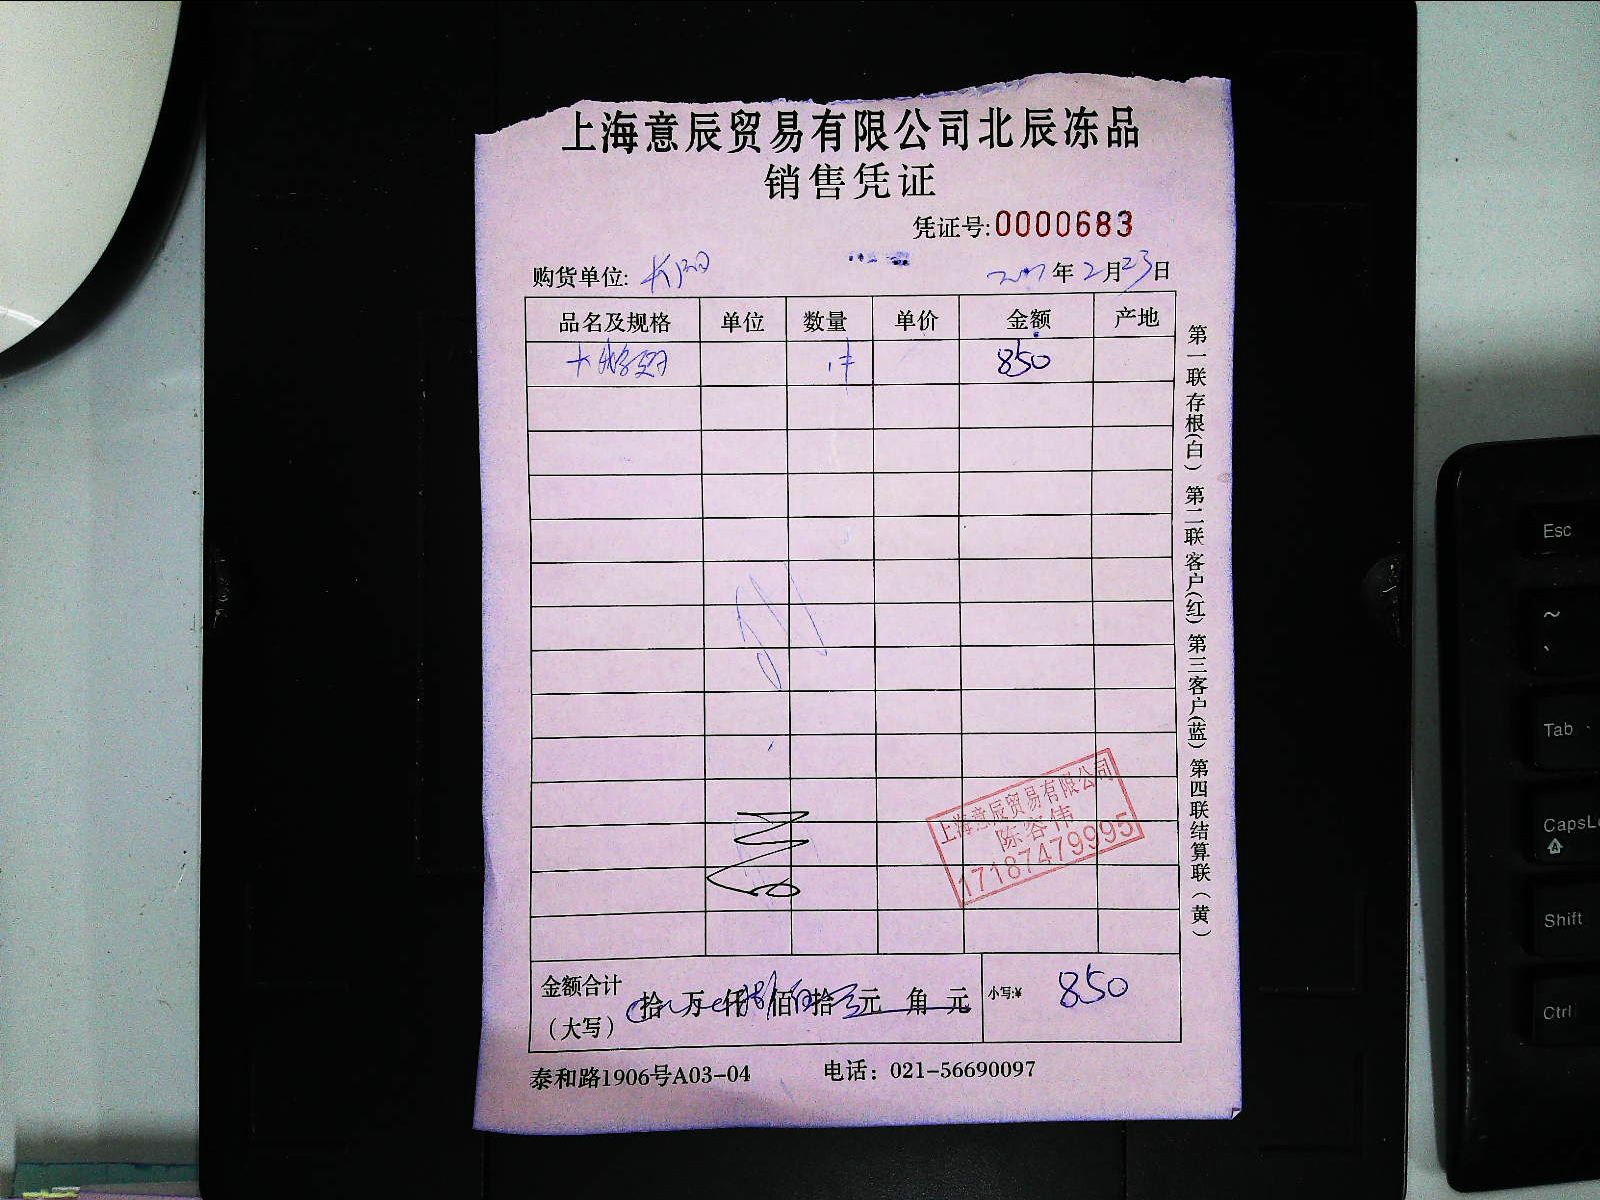 上海意辰贸易有限公司北辰冻品
销售凭证
凭证号:0000683
购货单位:
年2月23日
品名及规格 单位 数量 单价 金额 产地
850
第一联存根(白) 第二联客户(红) 第三客户(蓝) 第四联结算联(黄)
上海意辰贸易有限公司
陈容伟
17187479995
金额合计
(大写)
拾 万 仟 佰 拾 元 角 元
小写:¥ 850
泰和路1906号A03-04 电话: 021-56690097
Esc
~
Tab
CapsLo
Shift
Ctrl